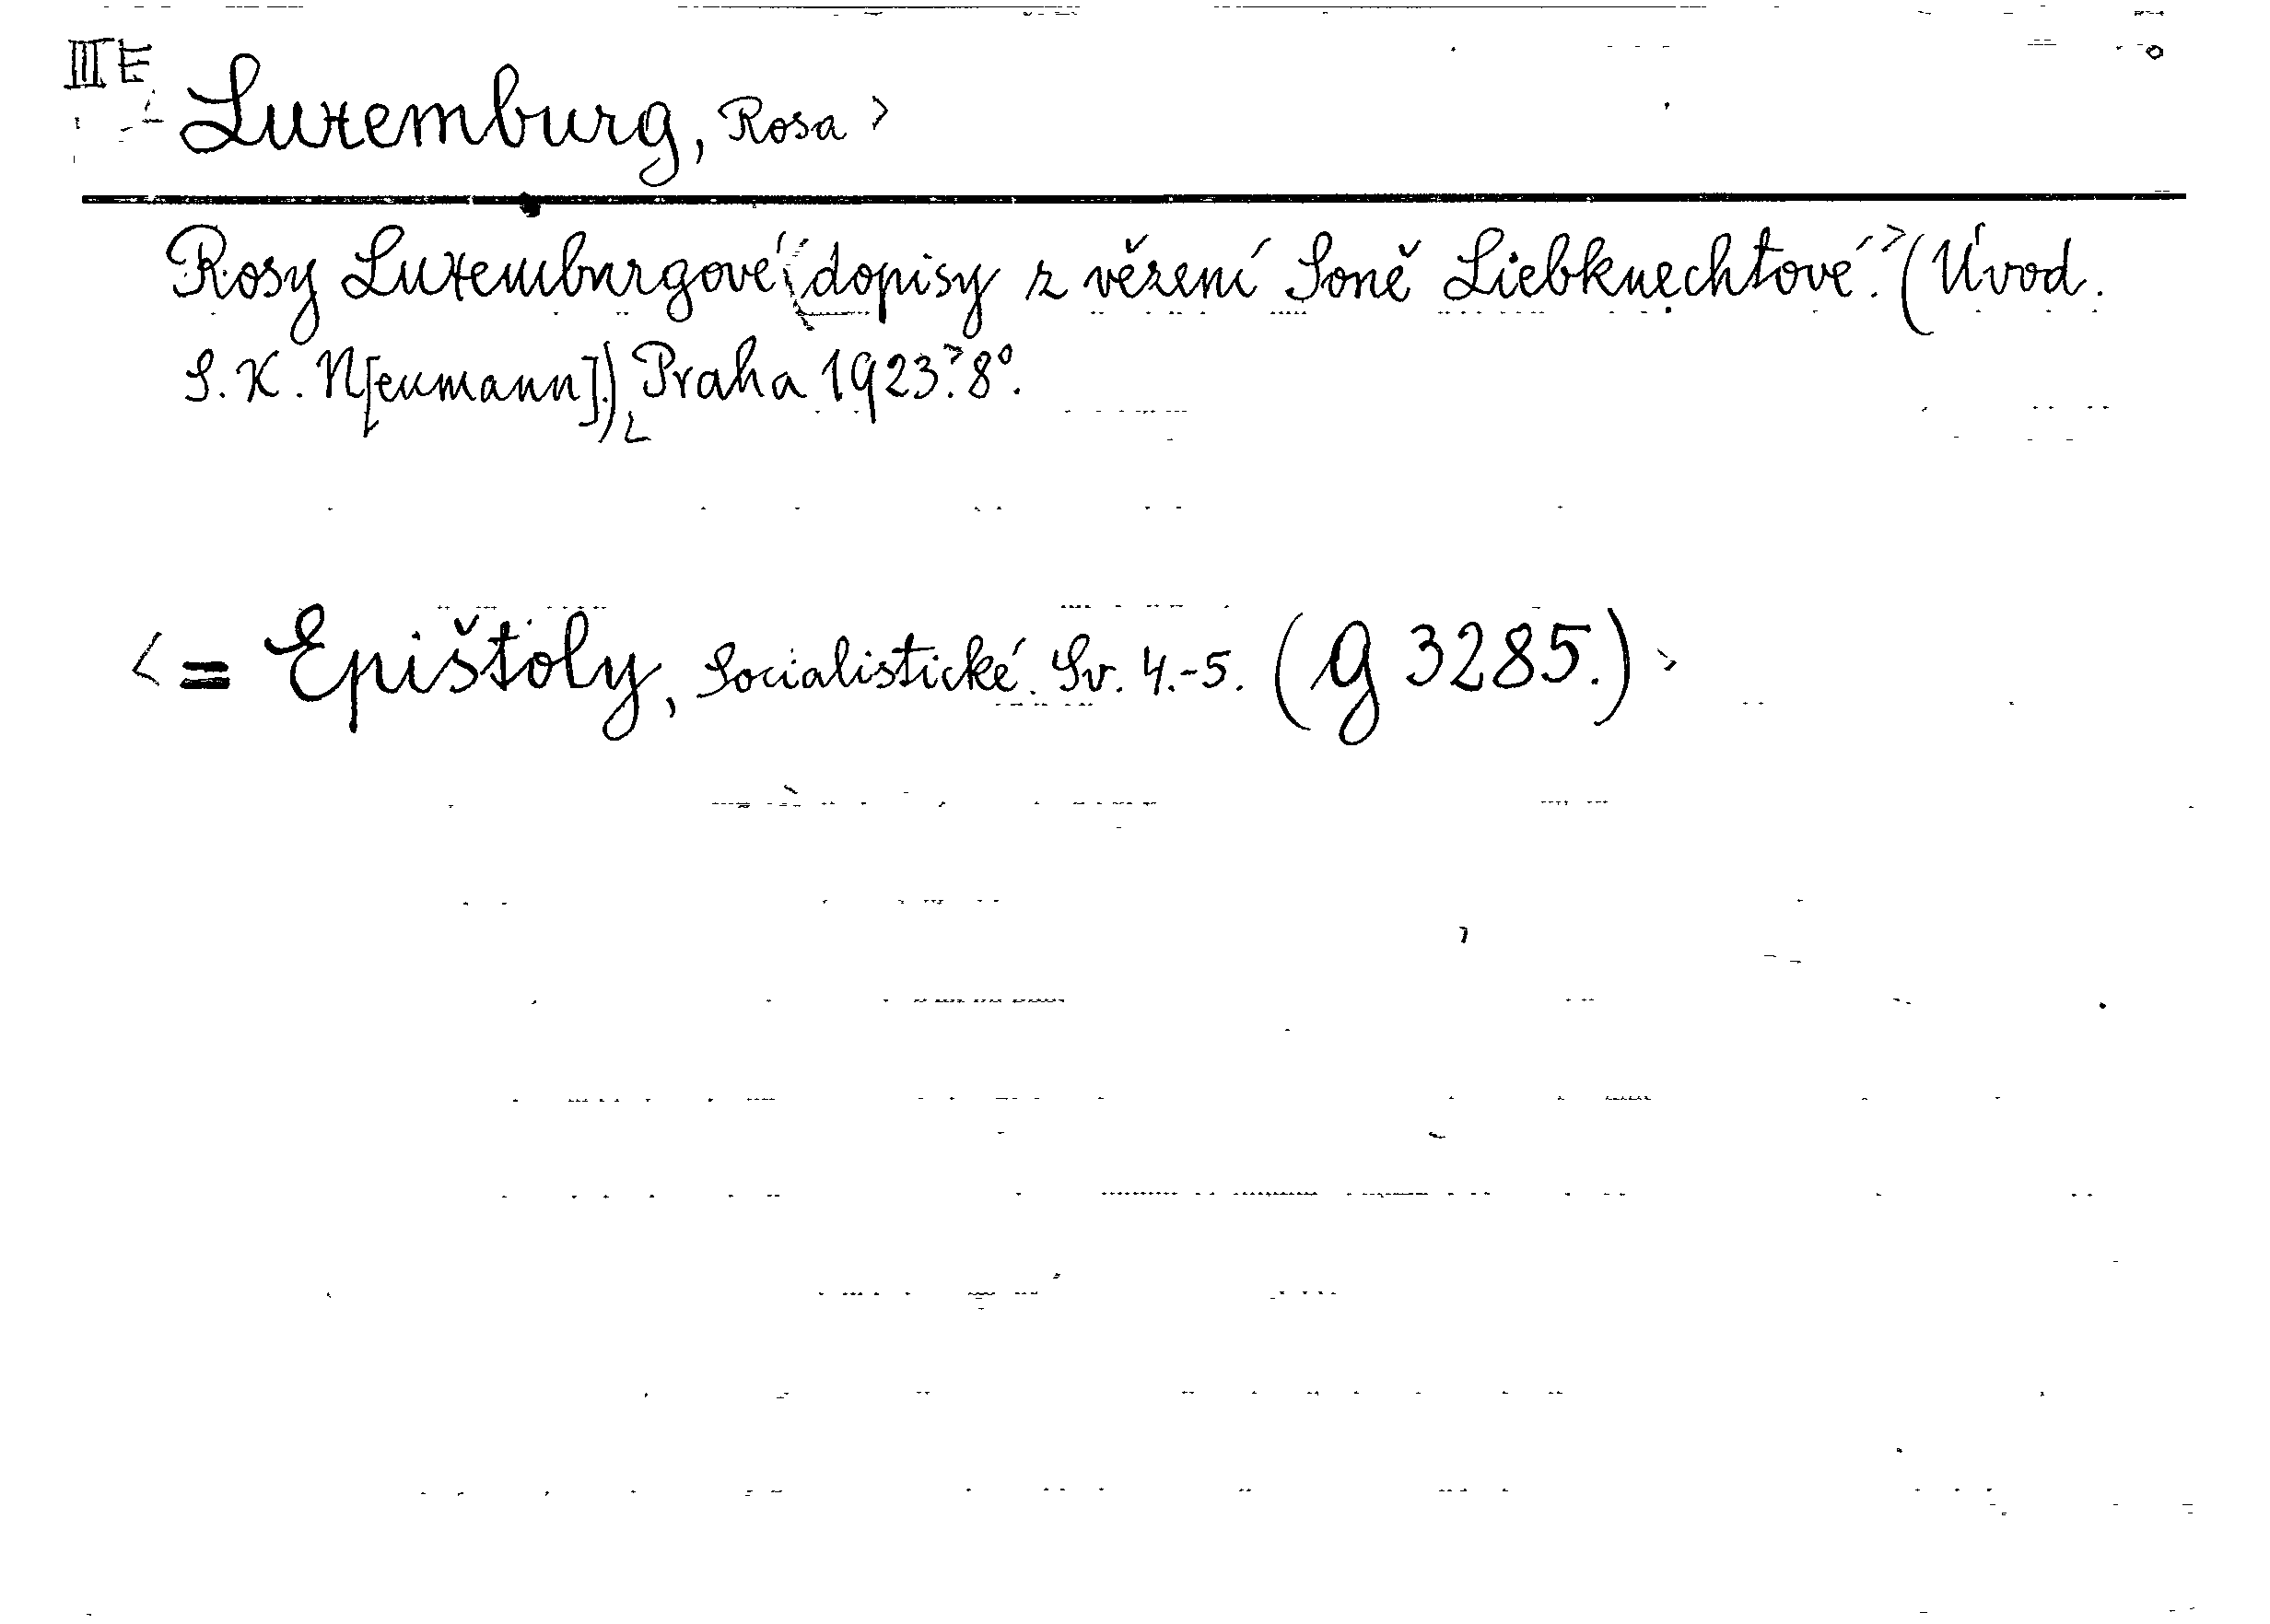 III E
Luxemburg, Rosa >
Rosy Luxemburgové (dopisy z vězení Soně Liebknechtové.> (Úvod.
S. K. N[eumann].) Praha 1923.> 8°.
< = Epištoly, Socialistické. Sv. 4.-5. (G 3285.) >